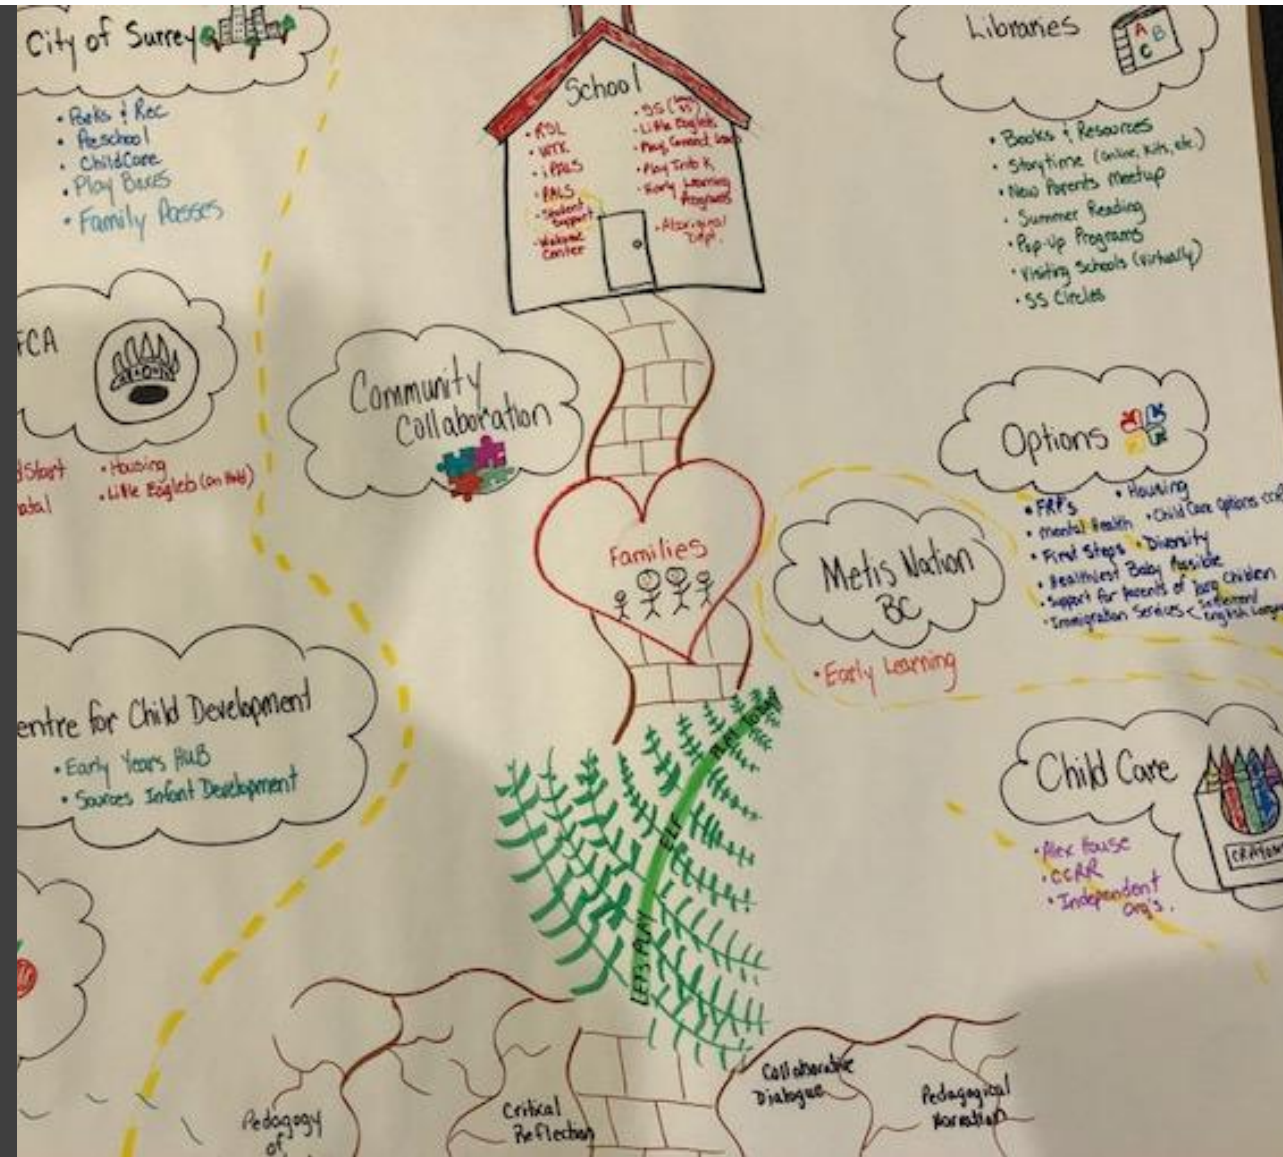 City of Surrey
• Parks & Rec
• Preschool
• ChildCare
• Play Boxes
• Family Passes
School
• RSL
• WTK
• iPALS
• PALS
• Student
Support
• Welcome
Center
• SS
• Little Eaglets
• Play, Connect
• Play Into K
• Early Learning
Programs
• Aboriginal
Dept.
Libraries
A B
C
• Books & Resources
• Storytime (online, kits, etc.)
• New Parents Meetup
• Summer Reading
• Pop-up Programs
• Visiting Schools (virtually)
• SS Circles
FCA
dStart
natal
• Housing
• Little Eaglets (on hold)
Community
Collaboration
Families
Options
• FRP's
• Mental Health
• First Steps
• Housing
• Child Care Options CCRR
• Diversity
• Healthiest Baby Possible
• Support for Parents of Young Children
• Immigration Services < Settlement
English
Metis Nation
BC
• Early Learning
entre for Child Development
• Early Years HUB
• Sources Infant Development
Child Care
CRAYON
• Alex House
• CCRR
• Independent
org's.
Play Today
ELF
LET'S PLAY
Pedagogy
of
Critical
Reflection
Collaborative
Dialogue
Pedagogical
Narration